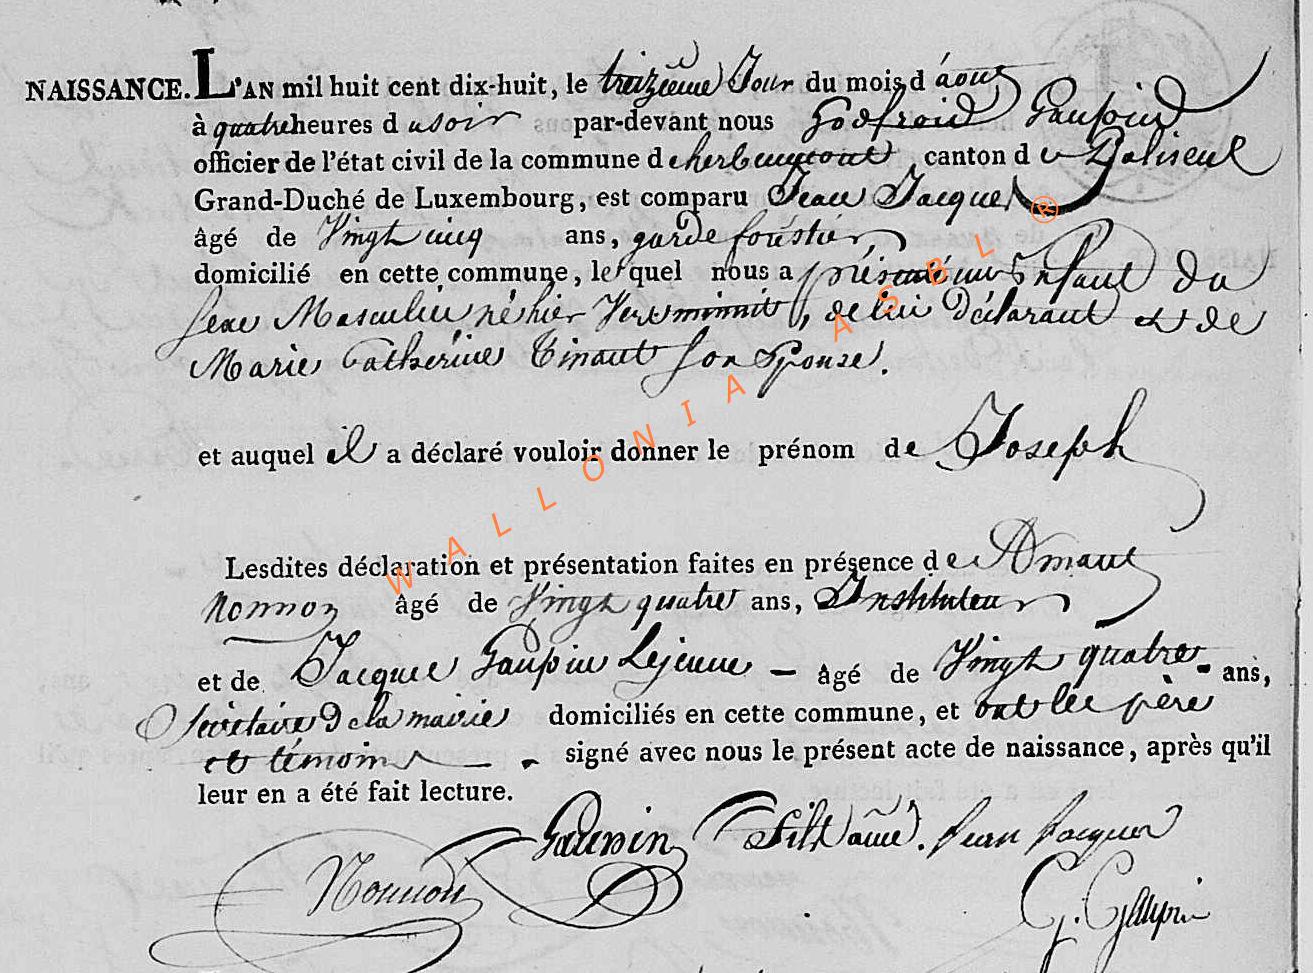 NAISSANCE. L'AN mil huit cent dix-huit, le treizième Jour du mois d'août
à quatre heures du soir par-devant nous Godfroid Gaupin
officier de l'état civil de la commune d'herbeumont, canton de Paliseul
Grand-Duché de Luxembourg, est comparu Jean Jacques
âgé de Vingt cinq ans, garde foréstier,
domicilié en cette commune, lequel nous a présenté un Enfant du
sexe Masculin né hier Vers minuit, de lui Déclarant et de
Marie Catherine Tinant son Epouse.
et auquel il a déclaré vouloir donner le prénom de Joseph
Lesdites déclaration et présentation faites en présence de Amant
Nonnon âgé de Vingt quatre ans, Instituteur
et de Jacques Gaupin Lejeune — âgé de Vingt quatre - ans,
Secrétaire de la mairie domiciliés en cette commune, et ont les père
et témoins — signé avec nous le présent acte de naissance, après qu'il
leur en a été fait lecture.
Nonnon Gaupin Fils ainé. Jean Jacques
G. Gaupin
WALLONIA ASBL ®